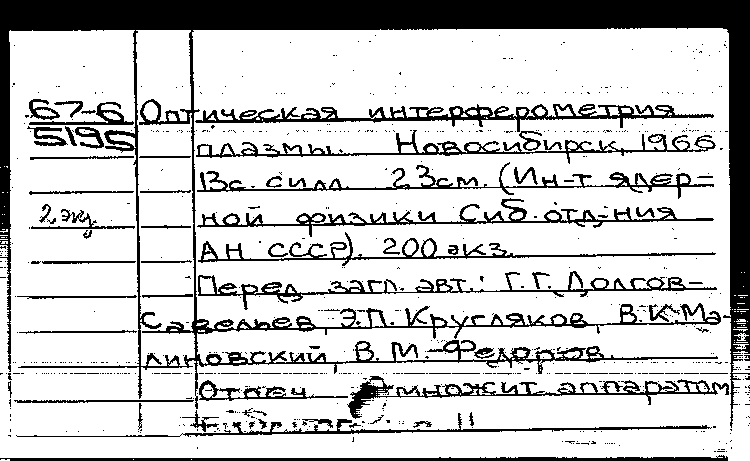 67-6 Оптическая интерферометрия
5195 плазмы. Новосибирск, 1966.
13с. силл. 23см. (Ин-т ядер-
2 экз. ной физики Сиб. отд-ния
АН СССР). 200 экз.
Перед загл. авт.: Г.Г. Долгов-
Савельев, Э.П. Кругляков, В.К. Ма-
линовский, В.М. Федоров.
Отпеч. множит. аппаратом